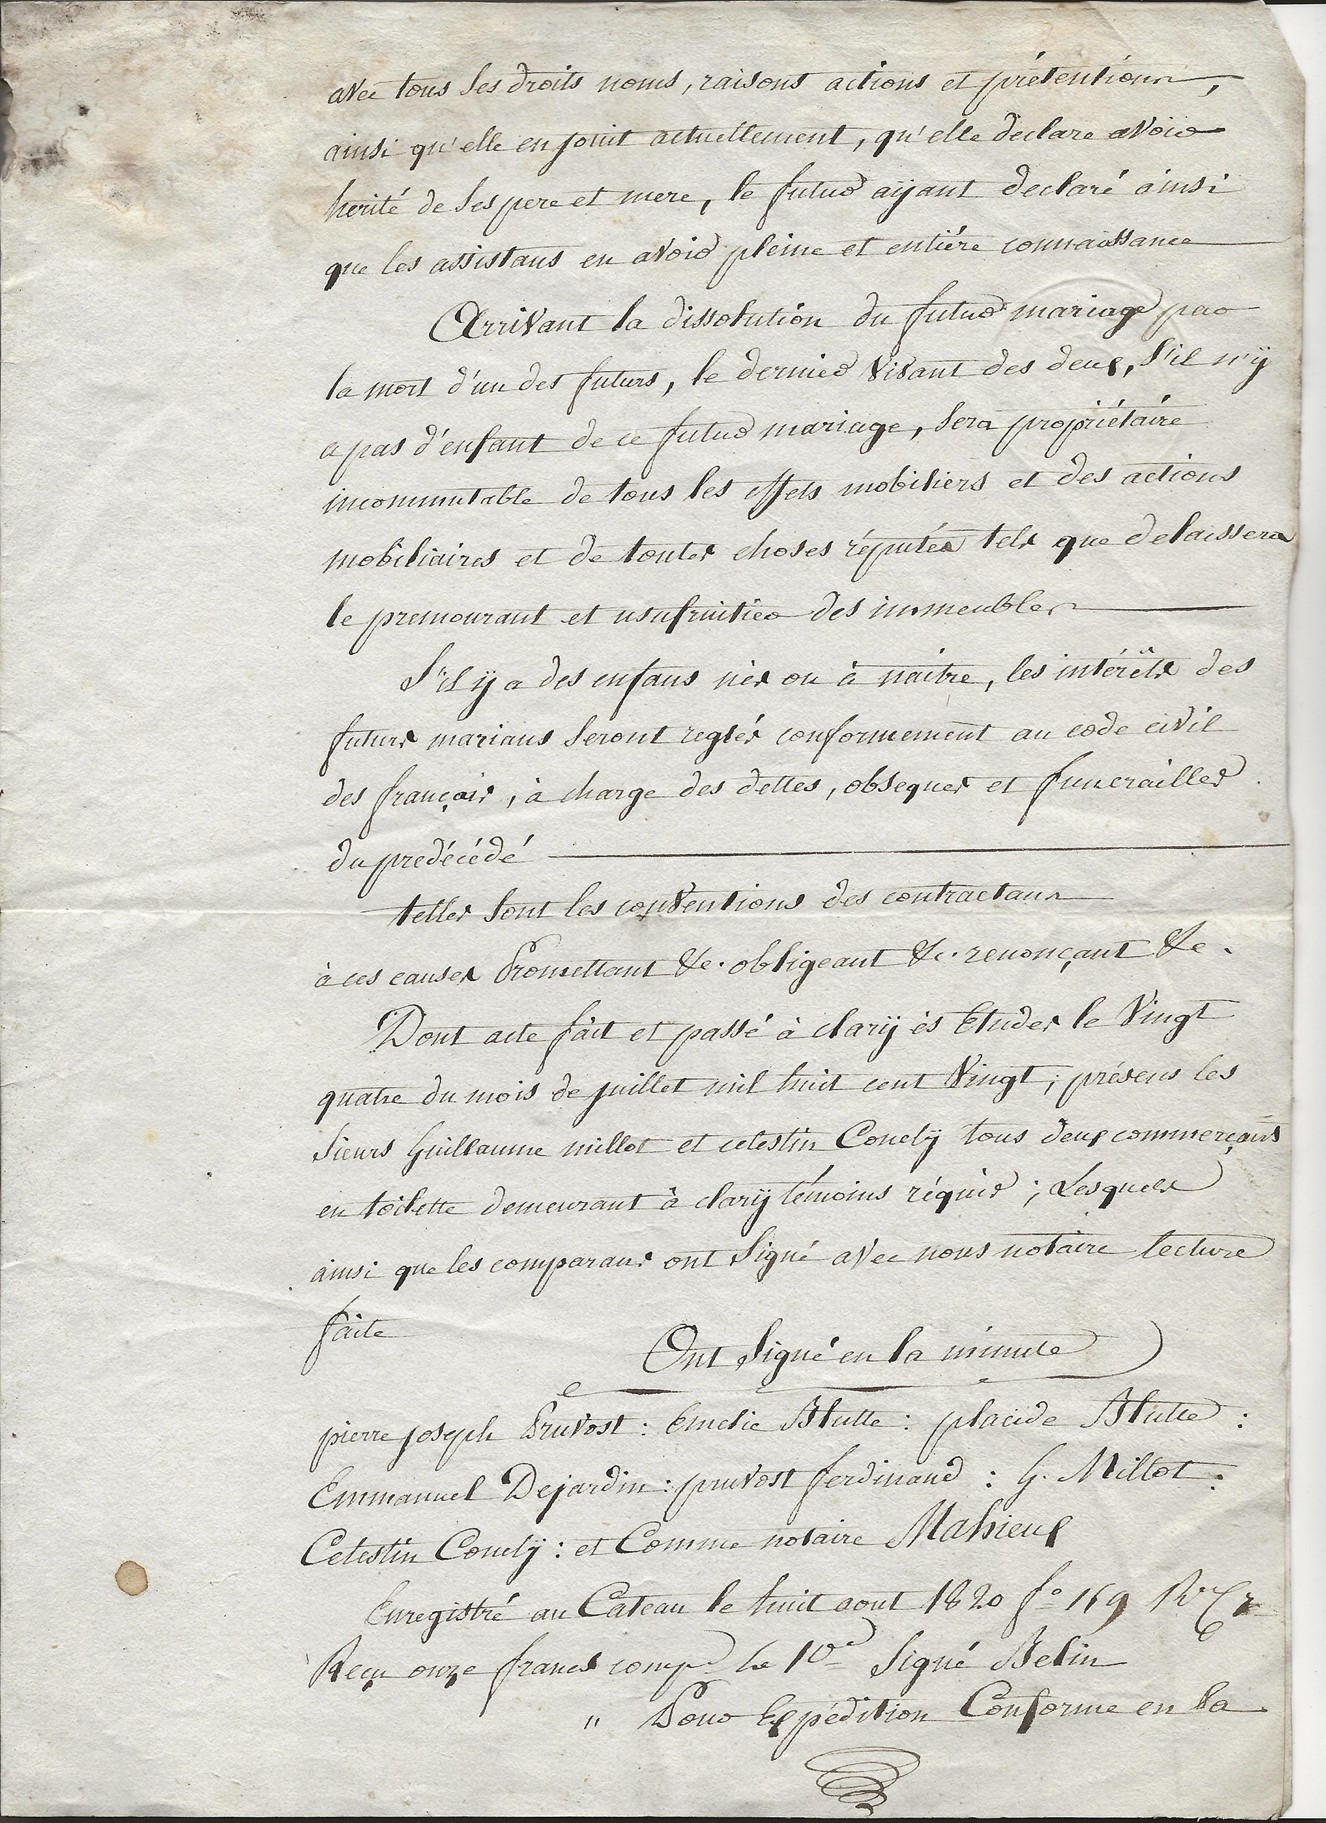 avec tous ses droits noms, raisons actions et prétentions,
ainsi qu'elle en jouit actuellement, qu'elle declare avoir
herité de ses pere et mere, le futur aÿant declaré ainsi
que les assistans en avoir pleine et entiére connaissance
Arrivant la dissolution du futur mariage par
la mort d'un des futurs, le dernier vivant des deux, s'il n'ÿ
a pas d'enfant de ce futur mariage, sera propriétaire
incommutable de tous les effets mobiliers et des actions
mobiliaires et de toutes choses réputées tels que delaissera
le premourant et usufruitier des immeubles
S'il ÿ a des enfans nés ou à naitre, les intérêts des
futurs marians seront reglés conformement au code civil
des français, à charge des dettes, obseques et funerailles
du predécédé
telles sont les conventions des contractans
à ces causes Promettant &c. obligeant &c. renonçant &c.
Dont acte fait et passé à clarÿ ès Etudes le Vingt
quatre du mois de juillet mil huit cent Vingt; présens les
sieurs Guillaume millot et celestin Conclÿ tous deux commerçans
en toilette demeurant à clarÿ témoins réquis; Lesquels
ainsi que les comparans ont signé avec nous notaire lecture
faite
Ont signé en la minute
pierre joseph Pruvost: Emelie Blutte: placide Blutte:
Emmanuel Dejardin: pruvost ferdinand: G. Millot:
Celestin Conclÿ: et Comme notaire Mahieux
Enregistré au Cateau le huit aout 1820 f° 169
Reçu onze francs comp. le 10e signé Belin
" Pour Expédition Conforme en la